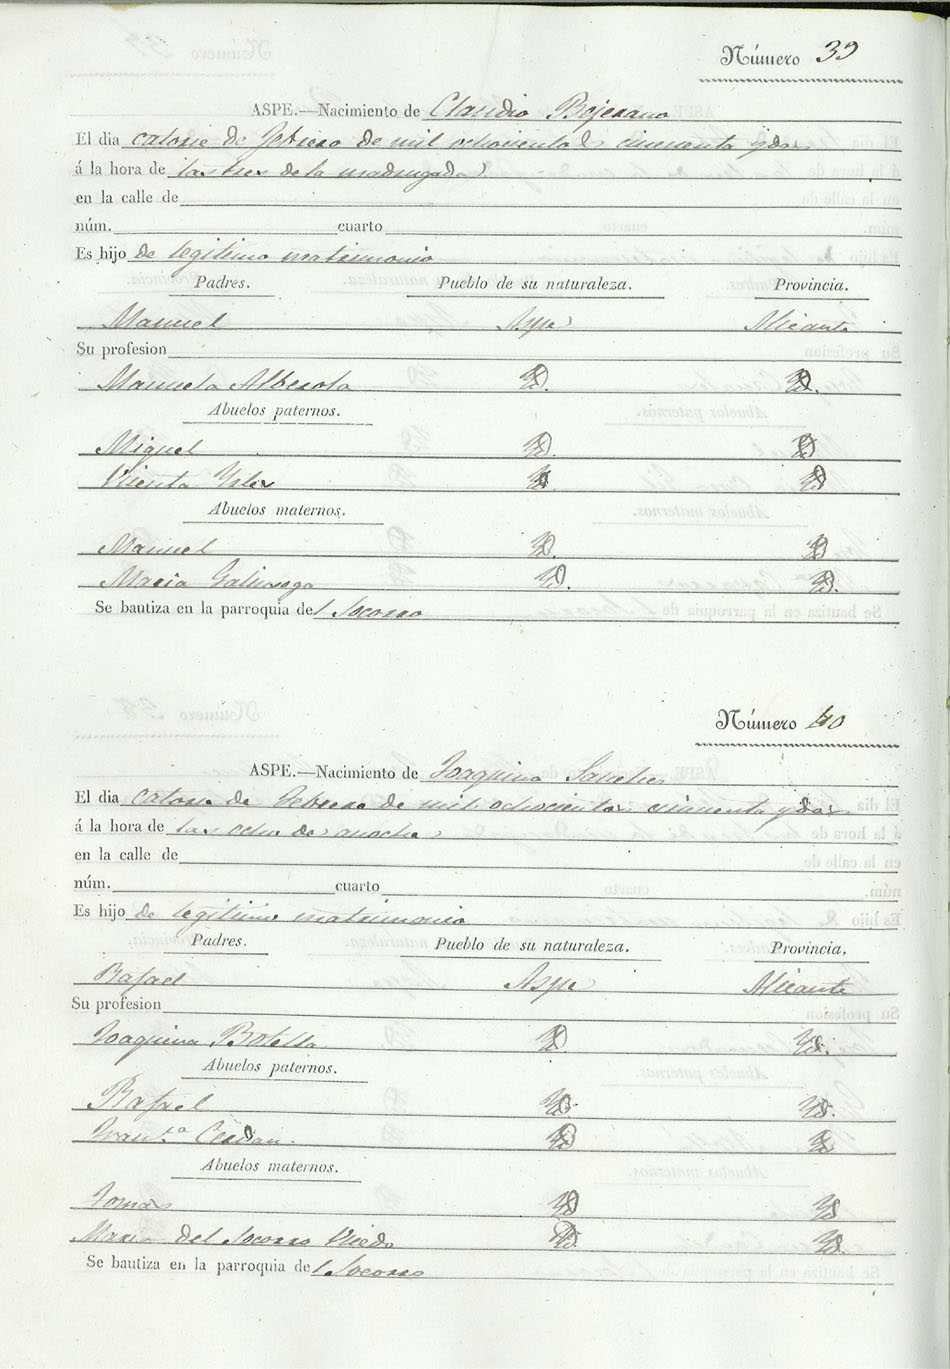 Número 39
ASPE.—Nacimiento de Claudio Bejerano
El dia catorse de Febrero de mil ochocientos cincuenta y dos
á la hora de las tres de la madrugada
en la calle de
núm. cuarto
Es hijo de legitimo matrimonio
Padres. Pueblo de su naturaleza. Provincia.
Manuel Aspe Alicante
Su profesion
Manuela Alberola Yd. Yd.
Abuelos paternos.
Miguel Yd. Yd
Vicenta Yd. Yd
Abuelos maternos.
Manuel Yd. Yd
Maria Galinsoga Yd. Yd.
Se bautiza en la parroquia del Socorro
Número 40
ASPE.—Nacimiento de Joaquina Sanches
El dia catorse de Febrero de mil ochocientos cincuenta y dos
á la hora de las ocho de anoche
en la calle de
núm. cuarto
Es hijo de legitimo matrimonio
Padres. Pueblo de su naturaleza. Provincia.
Rafael Aspe Alicante
Su profesion
Joaquina Botella Yd. Yd.
Abuelos paternos.
Rafael Yd. Yd.
Fran.ca Cerdan. Yd. Yd.
Abuelos maternos.
Tomas Yd Yd
Maria del Socorro Yd. Yd.
Se bautiza en la parroquia del Socorro